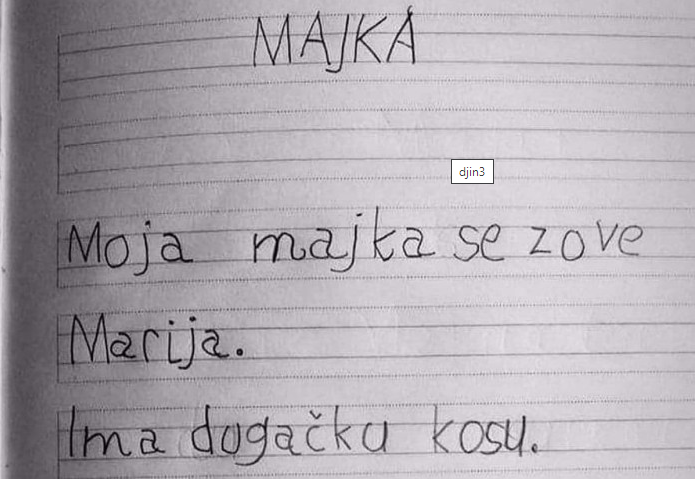 MAJKA
djin3
Moja majka se zove
Marija.
Ima dugačku kosu.